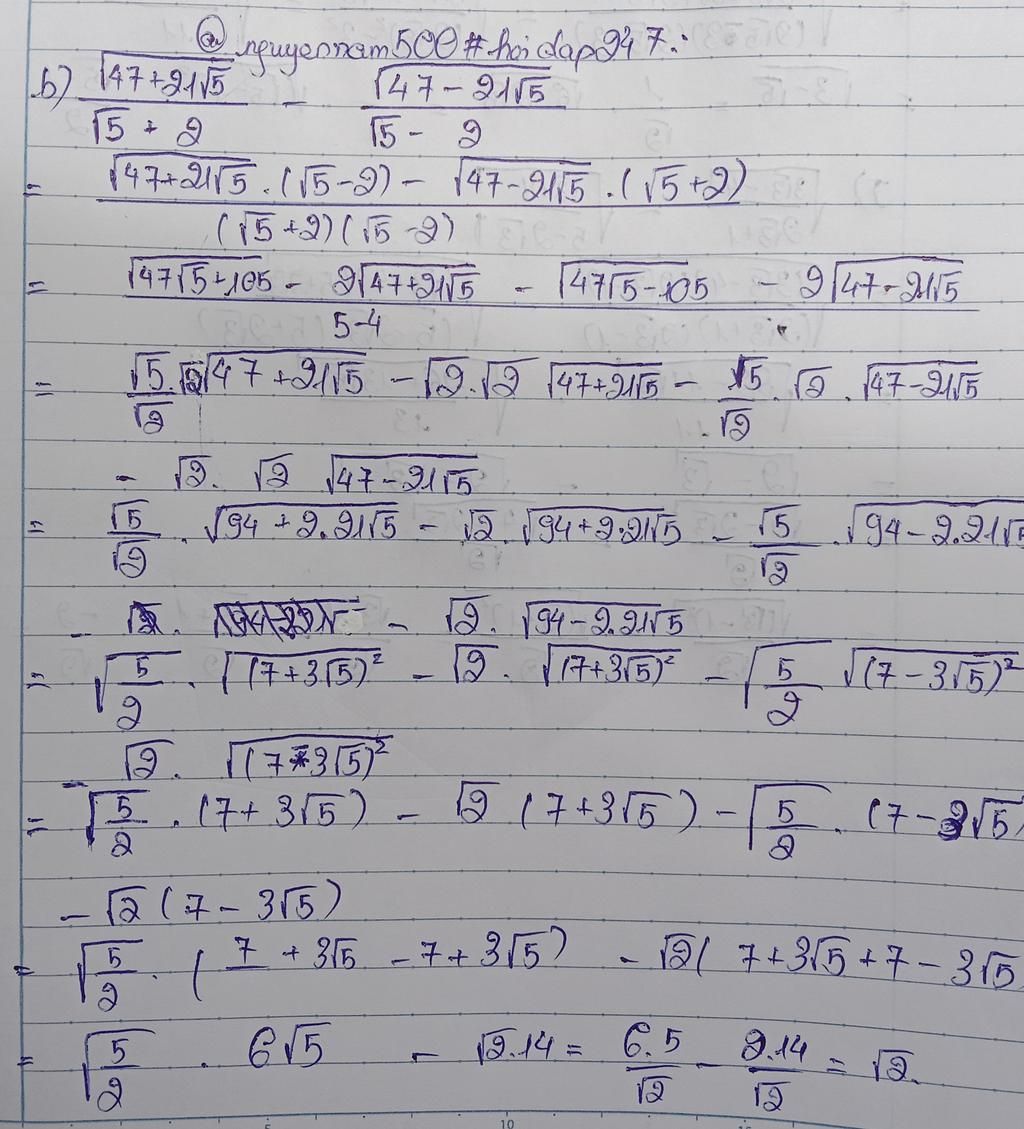 @nguyennam500#hoidap247.
b) \frac{\sqrt{47+21\sqrt{5}}}{\sqrt{5}+2} - \frac{\sqrt{47-21\sqrt{5}}}{\sqrt{5}-2}
= \frac{\sqrt{47+21\sqrt{5}}.(\sqrt{5}-2) - \sqrt{47-21\sqrt{5}}.(\sqrt{5}+2)}{(\sqrt{5}+2)(\sqrt{5}-2)}
= \frac{\sqrt{47\sqrt{5}+105} - 2\sqrt{47+21\sqrt{5}} - \sqrt{47\sqrt{5}-105} - 2\sqrt{47-21\sqrt{5}}}{5-4}
= \frac{\sqrt{5}}{\sqrt{2}}.\sqrt{2}\sqrt{47+21\sqrt{5}} - \sqrt{2}.\sqrt{2}\sqrt{47+21\sqrt{5}} - \frac{\sqrt{5}}{\sqrt{2}}.\sqrt{2}.\sqrt{47-21\sqrt{5}}
- \sqrt{2}.\sqrt{2}\sqrt{47-21\sqrt{5}}
= \frac{\sqrt{5}}{\sqrt{2}}.\sqrt{94+2.21\sqrt{5}} - \sqrt{2}.\sqrt{94+2.21\sqrt{5}} - \frac{\sqrt{5}}{\sqrt{2}}.\sqrt{94-2.21\sqrt{5}}
- \sqrt{2}.\sqrt{94-2.21\sqrt{5}}
= \sqrt{\frac{5}{2}}.\sqrt{(7+3\sqrt{5})^2} - \sqrt{2}.\sqrt{(7+3\sqrt{5})^2} - \sqrt{\frac{5}{2}}\sqrt{(7-3\sqrt{5})^2}
- \sqrt{2}.\sqrt{(7-3\sqrt{5})^2}
= \sqrt{\frac{5}{2}}.(7+3\sqrt{5}) - \sqrt{2}(7+3\sqrt{5}) - \sqrt{\frac{5}{2}}.(7-3\sqrt{5})
- \sqrt{2}(7-3\sqrt{5})
= \sqrt{\frac{5}{2}}.(7+3\sqrt{5}-7+3\sqrt{5}) - \sqrt{2}(7+3\sqrt{5}+7-3\sqrt{5}
= \sqrt{\frac{5}{2}}.6\sqrt{5} - \sqrt{2}.14 = \frac{6.5}{\sqrt{2}} - \frac{2.14}{\sqrt{2}} = \sqrt{2}.